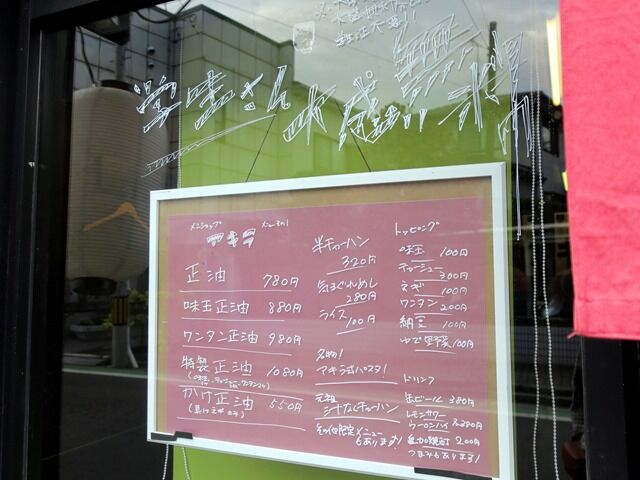 学生さん大盛
メンショップ
マキラ
正油 780円
味玉正油 880円
ワンタン正油 980円
特製正油 1080円
(味玉、チャーシュー、ワンタン入り)
かけ正油 550円
半チャーハン
320円
気まぐれめし
280円
ライス
100円
名物!
マキラ式パスタ!
元祖
汁なしチャーハン
その他限定メニュー
もあります!
トッピング
味玉 100円
チャーシュー
300円
ネギ 100円
ワンタン
200円
納豆 100円
ゆで野菜 100円
ドリンク
缶ビール 380円
レモンサワー
ウーロンハイ 各380円
200円
つまみもあります!